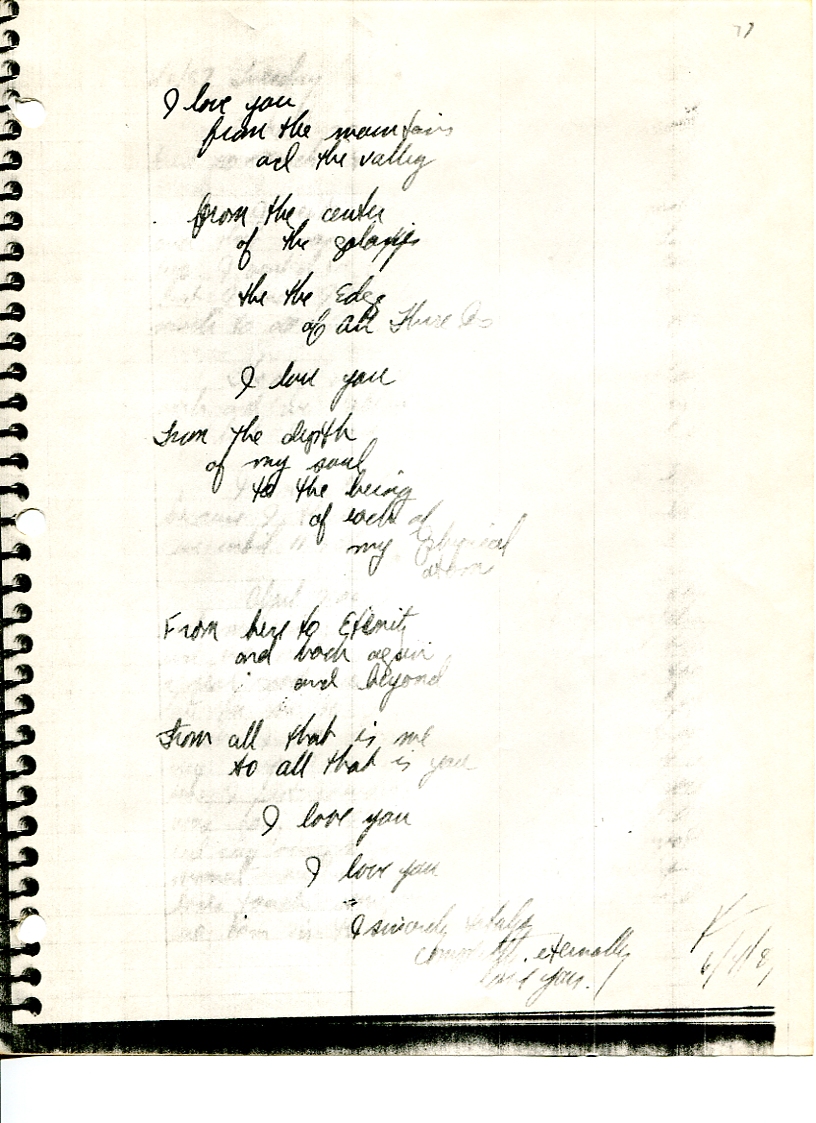 77
I love you
from the mountains
and the valley
from the center
of the galaxies
the the Edge
of all There Is
I love you
From the depth
of my soul
to the being
of each of
my physical
atom
From here to Eternity
and back again
and beyond
From all that is me
to all that is you
I love you
I love you
I sincerely totally
eternally
love you!